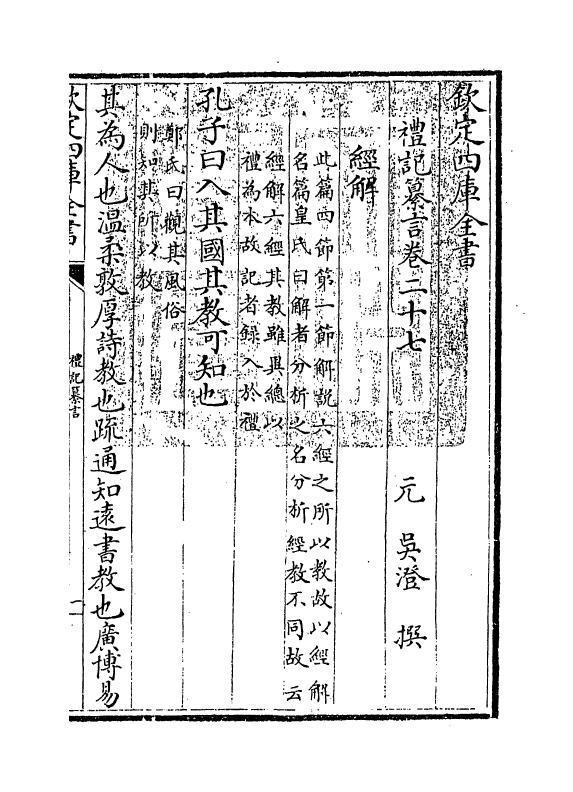 欽定四庫全書
禮記纂言卷二十七
元 吳澄 撰
經解
此篇四節第一節解説六經之所以教故以經解
名篇皇氏曰解者分析之名分析經教不同故云
經解六經其教雖異總以
禮為本故記者錄入於禮
孔子曰入其國其教可知也
鄭氏曰觀其風俗
則知其所以教
其為人也溫柔敦厚詩教也疏通知遠書教也廣博易
欽定四庫全書
禮記纂言
一